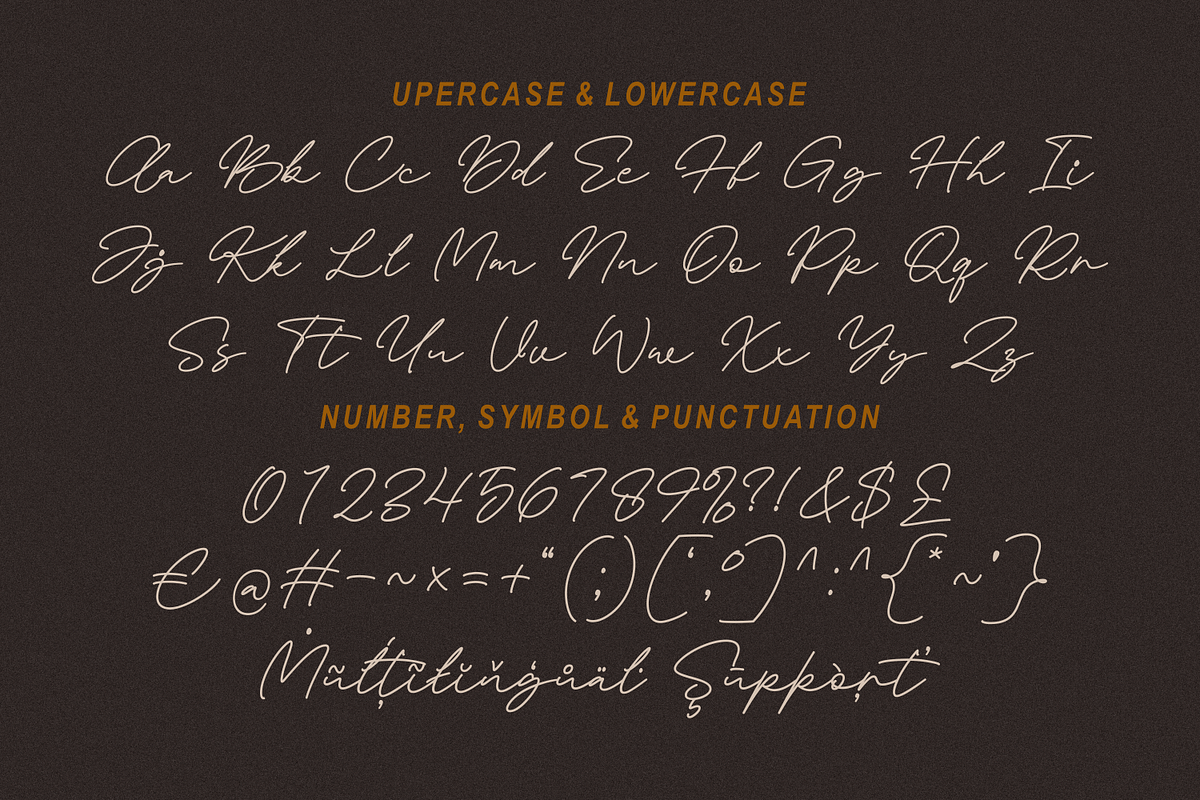 UPERCASE & LOWERCASE
Aa Bb Cc Dd Ee Ff Gg Hh Ii
Jj Kk Ll Mm Nn Oo Pp Qq Rr
Ss Tt Uu Vv Ww Xx Yy Zz
NUMBER, SYMBOL & PUNCTUATION
0123456789%?!&$£
€@#-~×=+“(;)[‘,°]^:^{*~’}
Ṁũťţĩłĭňġůäŀ Şūppòŗť